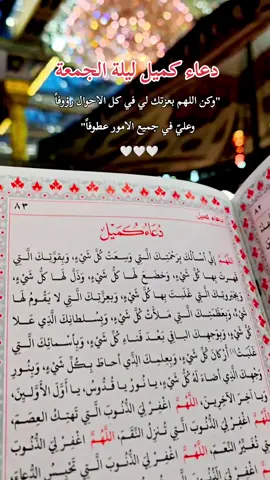 دعاء كميل ليلة الجمعة
"وكن اللهم بعزتك لي في كل الاحوال رؤوفاً
وعليّ في جميع الامور عطوفاً"
🤍🤍🤍
دعاء كميل
٨٣
دُعَاءُ كُمَيْل
اَللّٰهُمَّ إِنِّي أَسْأَلُكَ بِرَحْمَتِكَ الَّتِي وَسِعَتْ كُلَّ شَيْءٍ، وَبِقُوَّتِكَ الَّتِي
قَهَرْتَ بِهَا كُلَّ شَيْءٍ، وَخَضَعَ لَهَا كُلُّ شَيْءٍ، وَذَلَّ لَهَا كُلُّ شَيْءٍ،
وَبِجَبَرُوتِكَ الَّتِي غَلَبْتَ بِهَا كُلَّ شَيْءٍ، وَبِعِزَّتِكَ الَّتِي لَا يَقُومُ لَهَا
شَيْءٌ، وَبِعَظَمَتِكَ الَّتِي مَلَأَتْ كُلَّ شَيْءٍ، وَبِسُلْطَانِكَ الَّذِي عَلَا
كُلَّ شَيْءٍ، وَبِوَجْهِكَ الْبَاقِي بَعْدَ فَنَاءِ كُلِّ شَيْءٍ، وَبِأَسْمَائِكَ الَّتِي
أَرْكَانَ كُلِّ شَيْءٍ، وَبِعِلْمِكَ الَّذِي أَحَاطَ بِكُلِّ شَيْءٍ، وَبِنُورِ
وَجْهِكَ الَّذِي أَضَاءَ لَهُ كُلُّ شَيْءٍ، يَا نُورُ يَا قُدُّوسُ، يَا أَوَّلَ الْأَوَّلِينَ،
وَيَا آخِرَ الْآخِرِينَ، اَللّٰهُمَّ اغْفِرْ لِيَ الذُّنُوبَ الَّتِي تَهْتِكُ الْعِصَمَ،
اَللّٰهُمَّ اغْفِرْ لِيَ الذُّنُوبَ الَّتِي تُنْزِلُ النِّقَمَ، اَللّٰهُمَّ اغْفِرْ لِيَ الذُّنُوبَ
الَّتِي تُغَيِّرُ النِّعَمَ، اَللّٰهُمَّ اغْفِرْ لِيَ الذُّنُوبَ الَّتِي تَحْبِسُ الدُّعَاءَ،